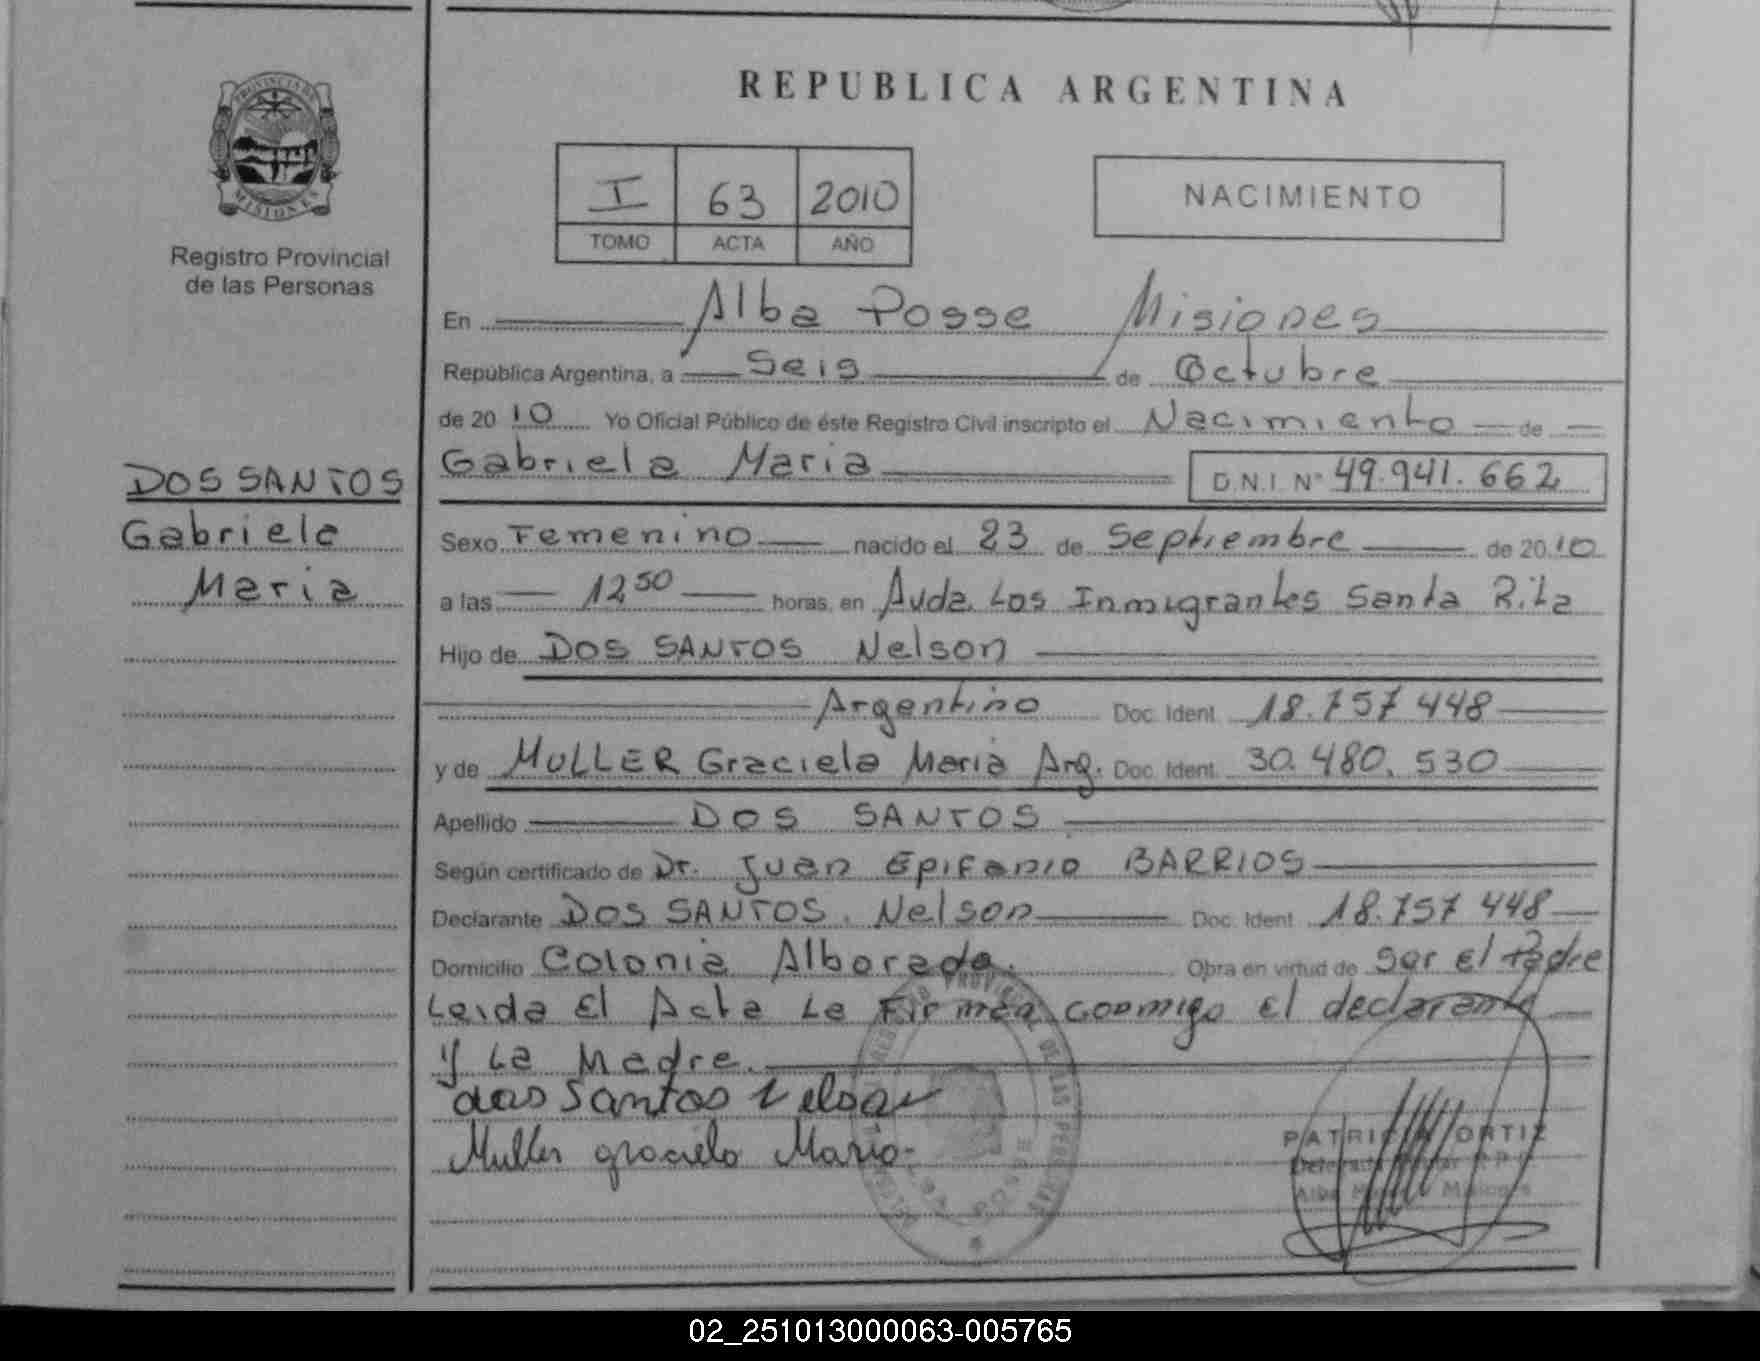 PROVINCIA DE
MISIONES
Registro Provincial
de las Personas
DOS SANTOS
Gabriela
Maria
REPUBLICA ARGENTINA
I 63 2010
TOMO ACTA AÑO
NACIMIENTO
En Alba Posse Misiones
República Argentina, a Seis de Octubre
de 20 10 Yo Oficial Público de éste Registro Civil inscripto el Nacimiento de
Gabriela Maria D.N.I. N° 49.941.662
Sexo Femenino nacido el 23 de Septiembre de 20 10
a las 12 50 horas, en Avda. Los Inmigrantes Santa Rita
Hijo de DOS SANTOS Nelson
Argentino Doc. Ident. 18.757 448
y de MULLER Graciela Maria Arg. Doc. Ident. 30.480.530
Apellido DOS SANTOS
Según certificado de Dr. Juan Epifanio BARRIOS
Declarante DOS SANTOS. Nelson Doc. Ident. 18.757 448
Domicilio Colonia Alborada. Obra en virtud de ser el Padre
Leida El Acta La Firman conmigo El declarante
y La Madre.
dos Santos Nelson
Muller graciela Maria
PATRICIA ORTIZ
02_251013000063-005765